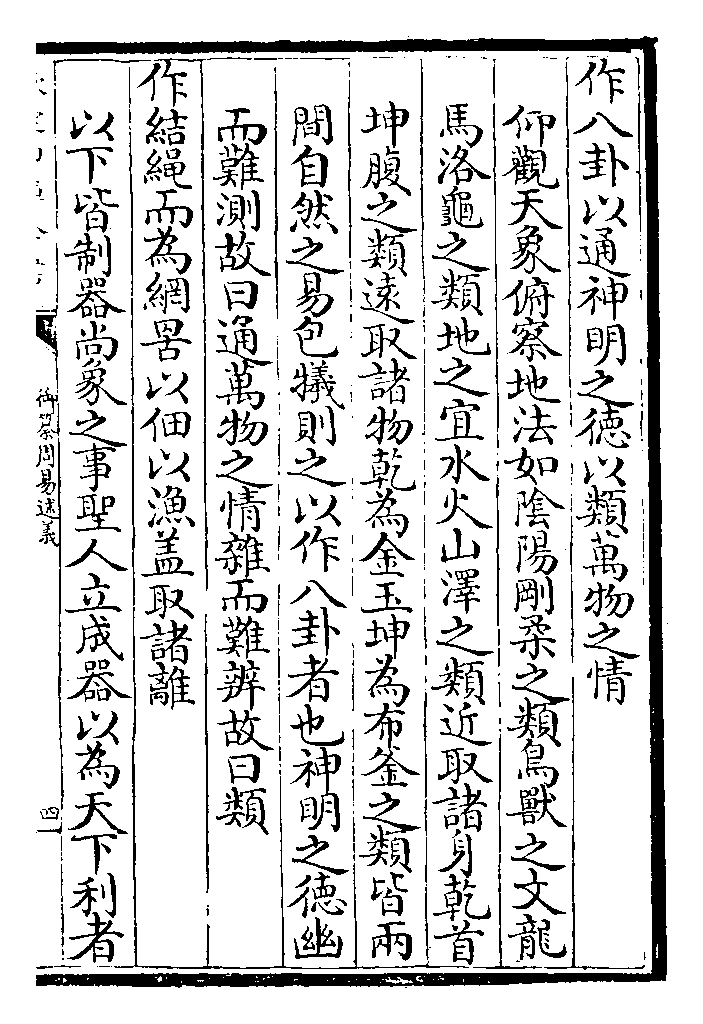 作八卦以通神明之徳以類萬物之情
仰觀天象俯察地法如陰陽剛柔之類鳥獸之文龍
馬洛龜之類地之宜水火山澤之類近取諸身乾首
坤腹之類逺取諸物乾為金玉坤為布釜之類皆兩
間自然之易包犧則之以作八卦者也神明之徳幽
而難測故曰通萬物之情雜而難辨故曰類
作結繩而為網罟以佃以漁盖取諸離
以下皆制器尚象之事聖人立成器以為天下利者
御纂周易述義
四